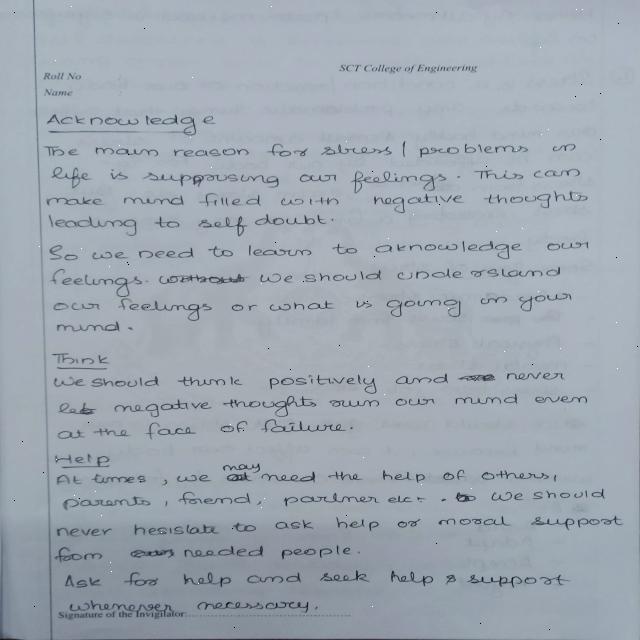 SCT College of Engineering
Roll No
Name
Acknowledge
The main reason for stress / problems in
life is suppprusing our feelings. This can
make mind filled with negative thoughts
leading to self doubt.
So we need to learn to aknowledge our
feelings. without we should understand
our feelings or what is going in your
mind.
Think
We should think positively and never
let negative thoughts ruin our mind even
at the face of failure.
Help
At times, we may need the help of others,
parents, friend, partner etc. We should
never hesistate to ask help or moral support
from needed people.
Ask for help and seek help & support
whenever necessary.
Signature of the Invigilator: